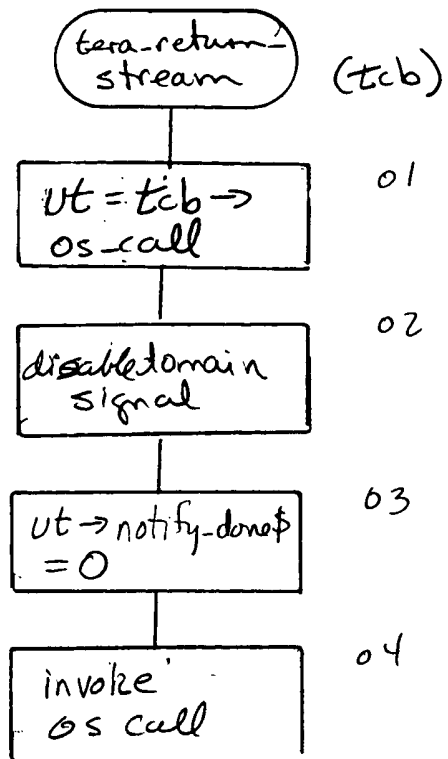 tera-return-
stream
(tcb)
01
ut = tcb →
os_call
02
disable domain
signal
03
ut → notify-done$
= 0
04
invoke
os call